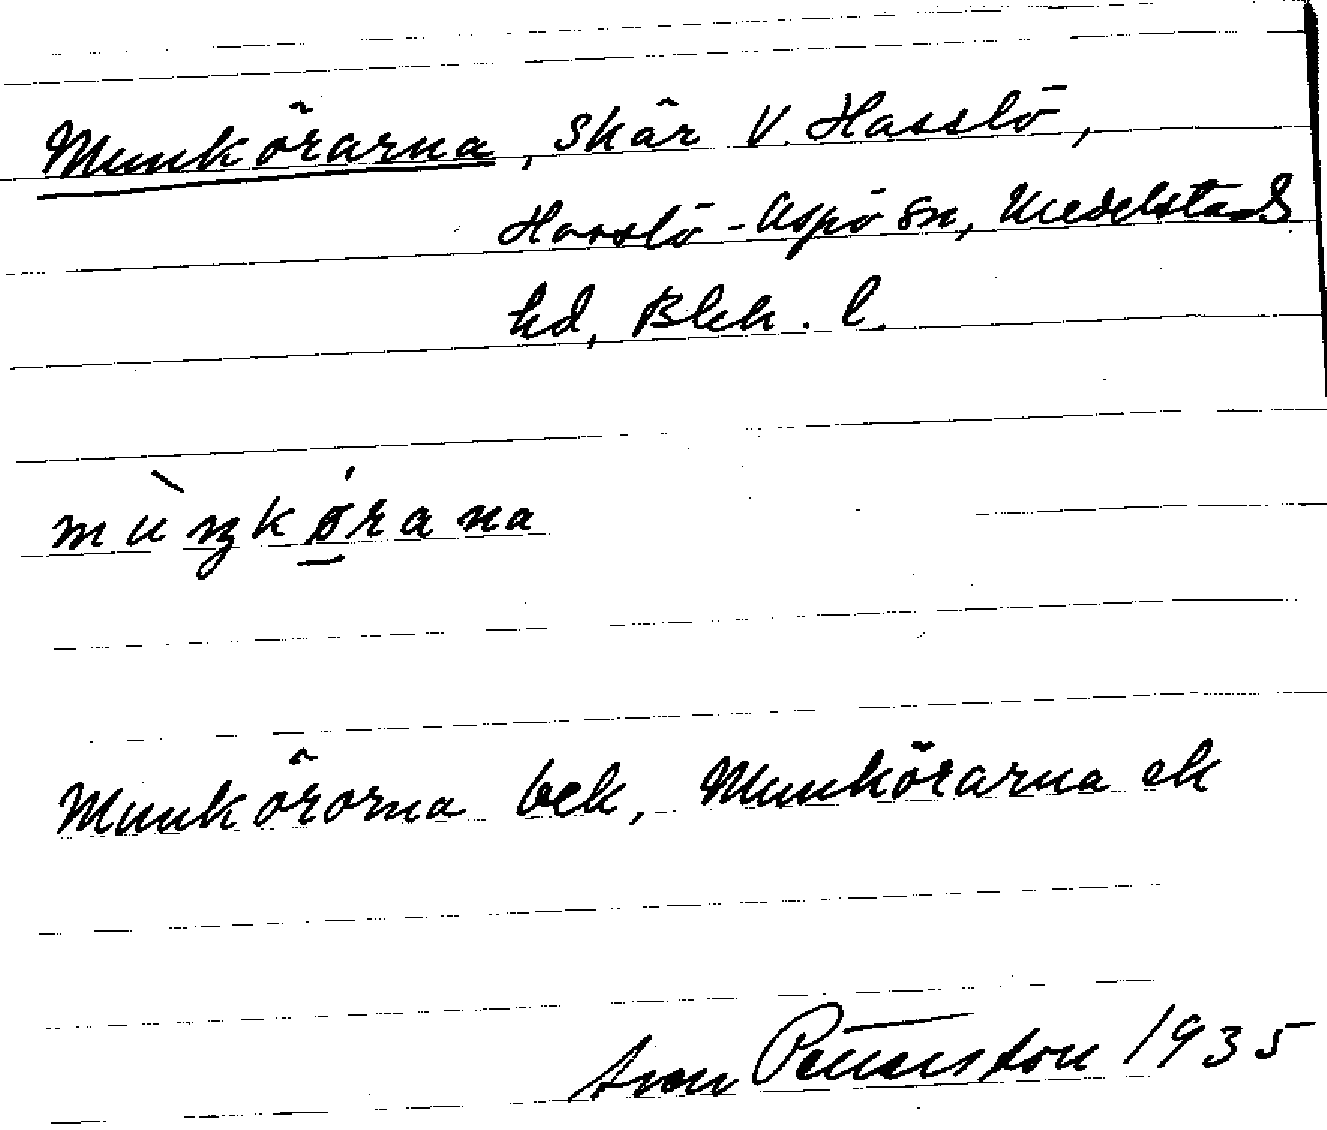 Munkörarna, skär V. Hasslö,
Hasslö-Aspö sn, Medelstads
hd, Blek. l.
mùŋkǿrana
Munkörorna bek, Munkörarna ek
Pettersson 1935